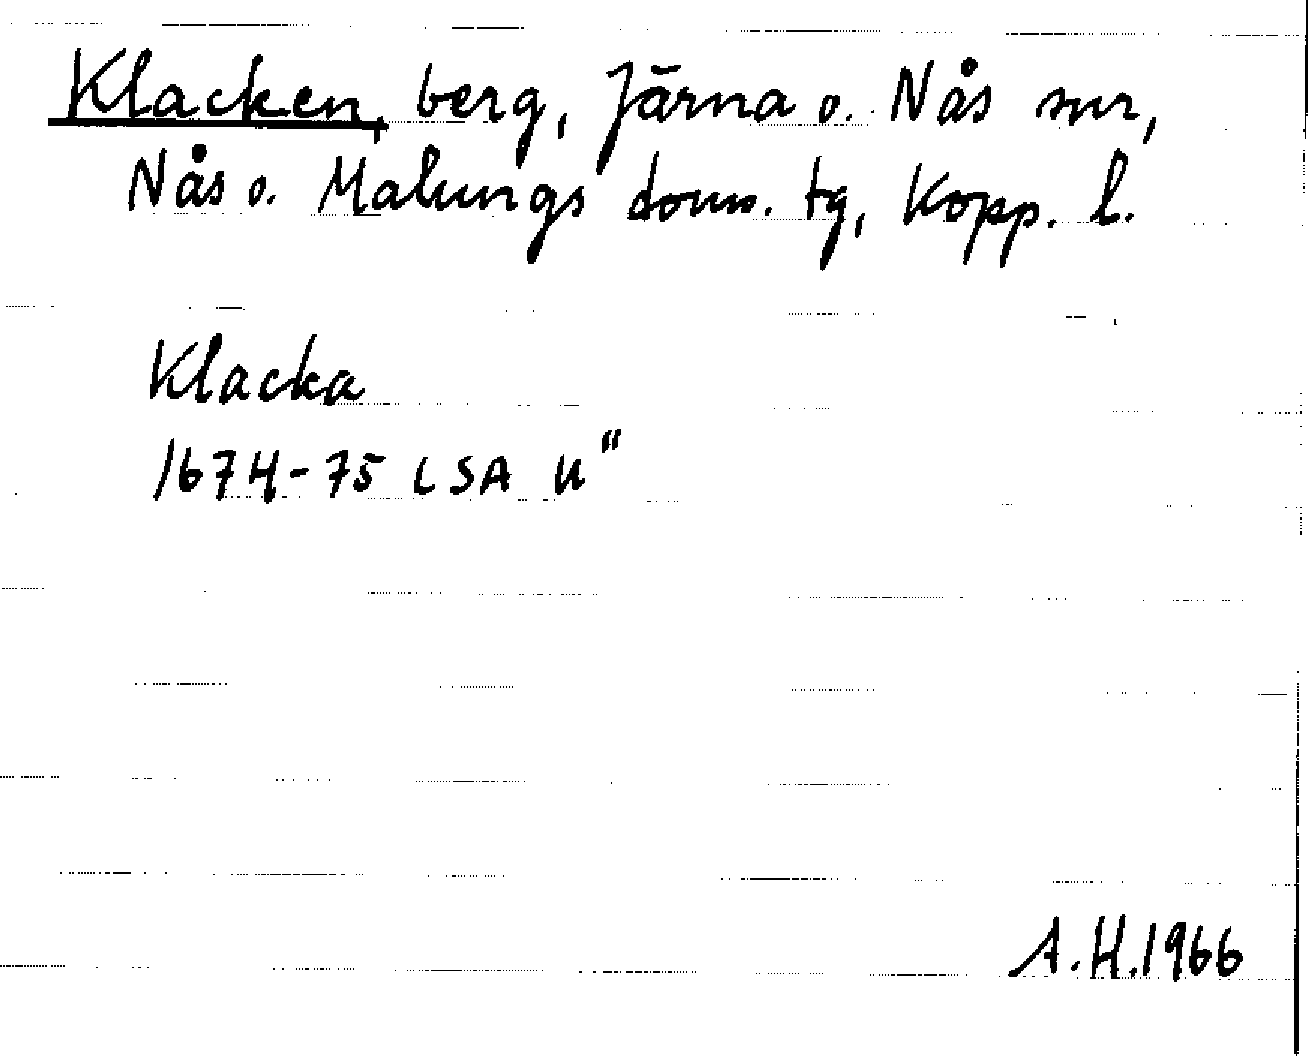 Klacken, berg, Järna o. Nås snr,
Nås o. Malungs doms. tg, Kopp. l.
Klacka
1674-75 LSA U"
A.H.1966